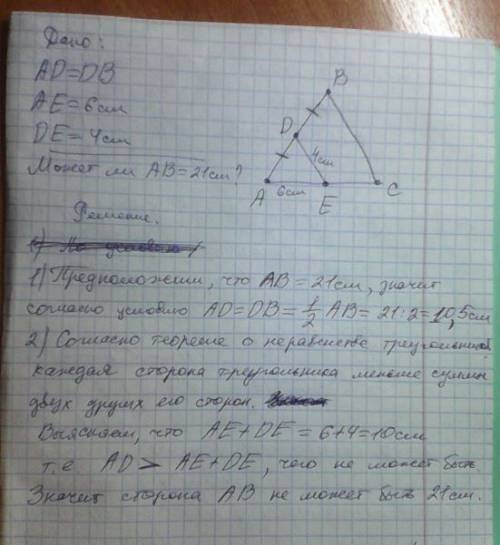 Дано:
AD=DB
AE=6см
DE=4см
Может ли AB=21см?
B
D
4см
A
6см
E
C
Решение.
1) По условию
1) Предположим, что AB=21см, значит
согласно условию AD=DB=1/2 AB=21:2=10,5см
2) Согласно теореме о неравенстве треугольника
каждая сторона треугольника меньше суммы
двух других его сторон.
Выясняем, что AE+DE=6+4=10см
т.е AD > AE+DE, чего не может быть.
Значит сторона AB не может быть 21см.